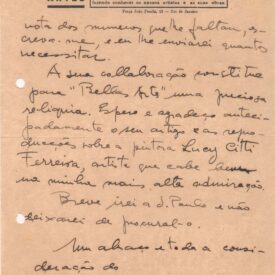 fazendo conhecer os nossos artistas e as suas obras
Praça João Pessôa, 13 — Rio de Janeiro
nota dos numeros que lhe faltam, es-
creva-me, e eu lhe enviarei quantos
necessitar.
A sua collaboração constitue
para "Bellas Artes" uma preciosa
reliquia. Espero e agradeço anteci-
padamente o seu artigo e as repro-
ducções sobre a pintora Lucy Citti
Ferreira, artista que cabe
na minha mais alta admiração.
Breve irei a S. Paulo e não
deixarei de procural-o.
Um abraço e toda a consi-
deração do